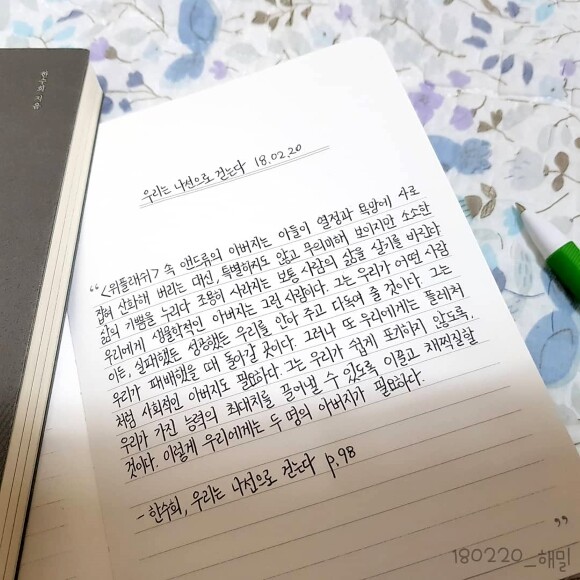 한수희 지음
우리는 나선으로 걷는다 18.02.20
“〈위플래쉬〉 속 앤드류의 아버지는 아들이 열정과 욕망에 사로
잡혀 산화해 버리는 대신, 특별하지도 않고 무의미해 보이지만 소소한
삶의 기쁨을 누리다 조용히 사라지는 보통 사람의 삶을 살기를 바란다.
우리에게 생물학적인 아버지는 그런 사람이다. 그는 우리가 어떤 사람
이든, 실패했든 성공했든 우리를 안아 주고 다독여 줄 것이다. 그는
우리가 패배했을 때 돌아갈 곳이다. 그러나 또 우리에게는 플레쳐
처럼 사회적인 아버지도 필요하다. 그는 우리가 쉽게 포기하지 않도록,
우리가 가진 능력의 최대치를 끌어낼 수 있도록 이끌고 채찍질할
것이다. 이렇게 우리에게는 두 명의 아버지가 필요하다.
- 한수희, 우리는 나선으로 걷는다 p.98
”
180220_해밀